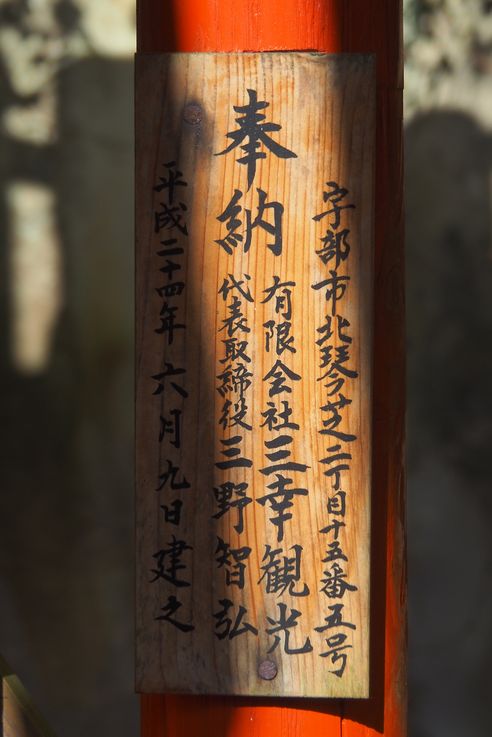 奉納
宇部市北琴芝二丁目十五番五号
有限会社三幸観光
代表取締役三野智弘
平成二十四年六月九日建之